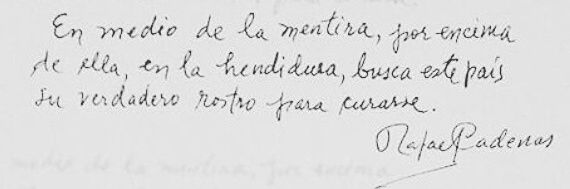 En medio de la mentira, por encima
de ella, en la hendidura, busca este país
su verdadero rostro para curarse.
Rafael Cadenas